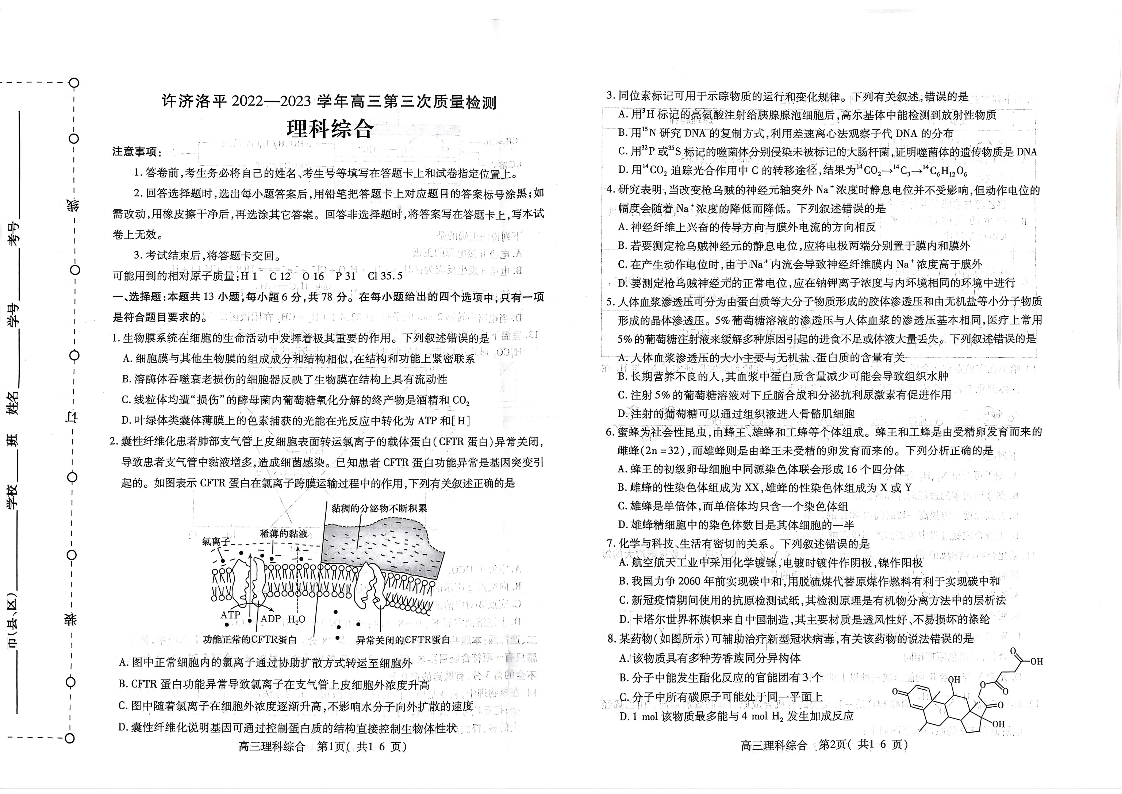 许济洛平 2022—2023 学年高三第三次质量检测
理科综合
注意事项：
1. 答卷前,考生务必将自己的姓名、考生号等填写在答题卡上和试卷指定位置上。
2. 回答选择题时,选出每小题答案后,用铅笔把答题卡上对应题目的答案标号涂黑;如
需改动,用橡皮擦干净后,再选涂其它答案。回答非选择题时,将答案写在答题卡上,写本试
卷上无效。
3. 考试结束后,将答题卡交回。
可能用到的相对原子质量:H 1 C 12 O 16 P 31 Cl 35.5
一、选择题:本题共 13 小题,每小题 6 分,共 78 分。在每小题给出的四个选项中,只有一项
是符合题目要求的。
1. 生物膜系统在细胞的生命活动中发挥着极其重要的作用。下列叙述错误的是
A. 细胞膜与其他生物膜的组成成分和结构相似,在结构和功能上紧密联系
B. 溶酶体吞噬衰老损伤的细胞器反映了生物膜在结构上具有流动性
C. 线粒体均受“损伤”的酵母菌内葡萄糖氧化分解的终产物是酒精和 CO₂
D. 叶绿体类囊体薄膜上的色素捕获的光能在光反应中转化为 ATP 和[H]
2. 囊性纤维化患者肺部支气管上皮细胞表面转运氯离子的载体蛋白(CFTR 蛋白)异常关闭,
导致患者支气管中黏液增多,造成细菌感染。已知患者 CFTR 蛋白功能异常是基因突变引
起的。如图表示 CFTR 蛋白在氯离子跨膜运输过程中的作用,下列有关叙述正确的是
黏稠的分泌物不断积累
稀薄的黏液
氯离子
ATP ADP H₂O
功能正常的CFTR蛋白 异常关闭的CFTR蛋白
A. 图中正常细胞内的氯离子通过协助扩散方式转运至细胞外
B. CFTR 蛋白功能异常导致氯离子在支气管上皮细胞外浓度升高
C. 图中随着氯离子在细胞外浓度逐渐升高,不影响水分子向外扩散的速度
D. 囊性纤维化说明基因可通过控制蛋白质的结构直接控制生物体性状
高三理科综合 第1页( 共1 6 页)
3. 同位素标记可用于示踪物质的运行和变化规律。下列有关叙述,错误的是
A. 用³H 标记的亮氨酸注射给胰腺腺泡细胞后,高尔基体中能检测到放射性物质
B. 用¹⁵N 研究 DNA 的复制方式,利用差速离心法观察子代 DNA 的分布
C. 用³²P 或³⁵S 标记的噬菌体分别侵染未被标记的大肠杆菌,证明噬菌体的遗传物质是 DNA
D. 用¹⁴CO₂ 追踪光合作用中 C 的转移途径,结果为¹⁴CO₂→¹⁴C₃→¹⁴C₆H₁₂O₆
4. 研究表明,当改变枪乌贼的神经元轴突外 Na⁺ 浓度时静息电位并不受影响,但动作电位的
幅度会随着 Na⁺ 浓度的降低而降低。下列叙述错误的是
A. 神经纤维上兴奋的传导方向与膜外电流的方向相反
B. 若要测定枪乌贼神经元的静息电位,应将电极两端分别置于膜内和膜外
C. 在产生动作电位时,由于 Na⁺ 内流会导致神经纤维膜内 Na⁺ 浓度高于膜外
D. 要测定枪乌贼神经元的正常电位,应在钠钾离子浓度与内环境相同的环境中进行
5. 人体血浆渗透压可分为由蛋白质等大分子物质形成的胶体渗透压和由无机盐等小分子物质
形成的晶体渗透压。5% 葡萄糖溶液的渗透压与人体血浆的渗透压基本相同,医疗上常用
5% 的葡萄糖注射液来缓解多种原因引起的进食不足或体液大量丢失。下列叙述错误的是
A. 人体血浆渗透压的大小主要与无机盐、蛋白质的含量有关
B. 长期营养不良的人,其血浆中蛋白质含量减少可能会导致组织水肿
C. 注射 5% 的葡萄糖溶液对下丘脑合成和分泌抗利尿激素有促进作用
D. 注射的葡萄糖可以通过组织液进入骨骼肌细胞
6. 蜜蜂为社会性昆虫,由蜂王、雄蜂和工蜂等个体组成。蜂王和工蜂是由受精卵发育而来的
雌蜂(2n = 32),而雄蜂则是由蜂王未受精的卵发育而来的。下列分析正确的是
A. 蜂王的初级卵母细胞中同源染色体联会形成 16 个四分体
B. 雌蜂的性染色体组成为 XX,雄蜂的性染色体组成为 X 或 Y
C. 雄蜂是单倍体,而单倍体均只含一个染色体组
D. 雄蜂精细胞中的染色体数目是其体细胞的一半
7. 化学与科技、生活有密切的关系。下列叙述错误的是
A. 航空航天工业中采用化学镀镍,电镀时镀件作阴极,镍作阳极
B. 我国力争 2060 年前实现碳中和,用脱硫煤代替原煤作燃料有利于实现碳中和
C. 新冠疫情期间使用的抗原检测试纸,其检测原理是有机物分离方法中的层析法
D. 卡塔尔世界杯旗帜来自中国制造,其主要材质是透风性好、不易损坏的涤纶
8. 某药物(如图所示)可辅助治疗新型冠状病毒,有关该药物的说法错误的是
A. 该物质具有多种芳香族同分异构体
B. 分子中能发生酯化反应的官能团有 3 个
C. 分子中所有碳原子可能处于同一平面上
D. 1 mol 该物质最多能与 4 mol H₂ 发生加成反应
O
OH
OH
O
O
O
O
OH
高三理科综合 第2页( 共1 6 页)
市(县、区)
学校
班
姓名
学号
考号
装
订
线